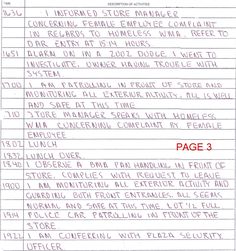 TIME DESCRIPTION OF ACTIVITIES
1636 I INFORMED STORE MANAGER
CONCERNING FEMALE EMPLOYEE COMPLAINT
IN REGARDS TO HOMELESS WMA, REFER TO
DAR ENTRY AT 1514 HOURS
1651 ALARM ON IN A 2002 DODGE I WENT TO
INVESTIGATE, OWNER HAVING TROUBLE WITH
SYSTEM.
1700 I AM PATROLLING IN FRONT OF STORE AND
MONITORING ALL EXTERIOR ACTIVITY. ALL IS WELL
AND SAFE AT THIS TIME
710 STORE MANAGER SPEAKS WITH HOMELESS
WMA CONCERNING COMPLAINT BY FEMALE
EMPLOYEE
1802 LUNCH
PAGE 3
1832 LUNCH OVER
1840 I OBSERVE A BMA PAN HANDLING IN FRONT OF
STORE, COMPLIES WITH REQUEST TO LEAVE
1900 I AM MONITORING ALL EXTERIOR ACTIVITY AND
GUARDING BOTH FRONT ENTRANCES. ALL SEEMS
NORMAL AND SAFE AT THIS TIME. LOT IS FULL
1914 POLICE CAR PATROLLING IN FRONT OF THE
STORE
1922 I AM CONFERRING WITH PLAZA SECURITY
OFFICER